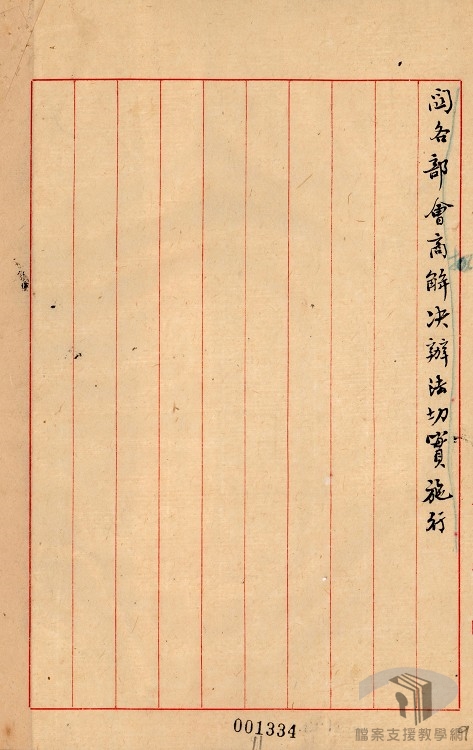 関各部會商解决辦法切實施行
001334
檔案支援教學網